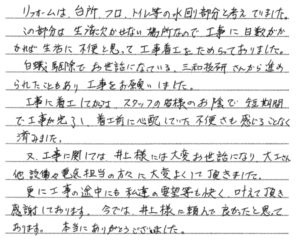 リフォームは、台所、フロ、トイレ等の水回り部分と考えていました。
この部分は生活欠かせない場所なので、工事に日数がか
かれば生活に不便と思って工事着工をためらっておりました。
白蟻駆除でお世話になっている、三和技研さんから進め
られたこともあり工事をお願いしました。
工事に着工してからは、スタッフの皆様のお陰で短期間
で工事が完了し、着工前に心配していた不便さも感じることなく
済みました。
又、工事に関しては井上様には大変お世話になり大工さん
他設備や電気担当の方々に大変よくして頂きました。
更に工事の途中にも私達の要望等も快く、叶えて頂き
感謝しております。今では、井上様に頼んで良かったと思って
おります。本当にありがとうございました。